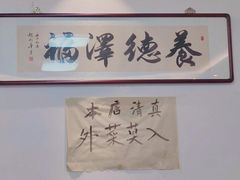 養德澤福
本店清真
外菜莫入